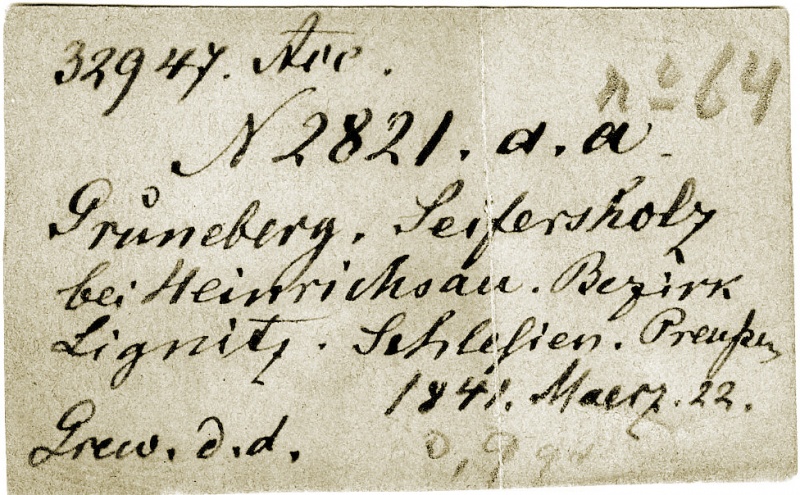 32947. Acc.
no 64
N 2821. a. a.
Grüneberg. Seifersholz
bei Heinrichsau. Bezirk
Lignitz. Schlesien. Preußen
1841. Maerz. 22.
Grew. d. d.
0,9 gr